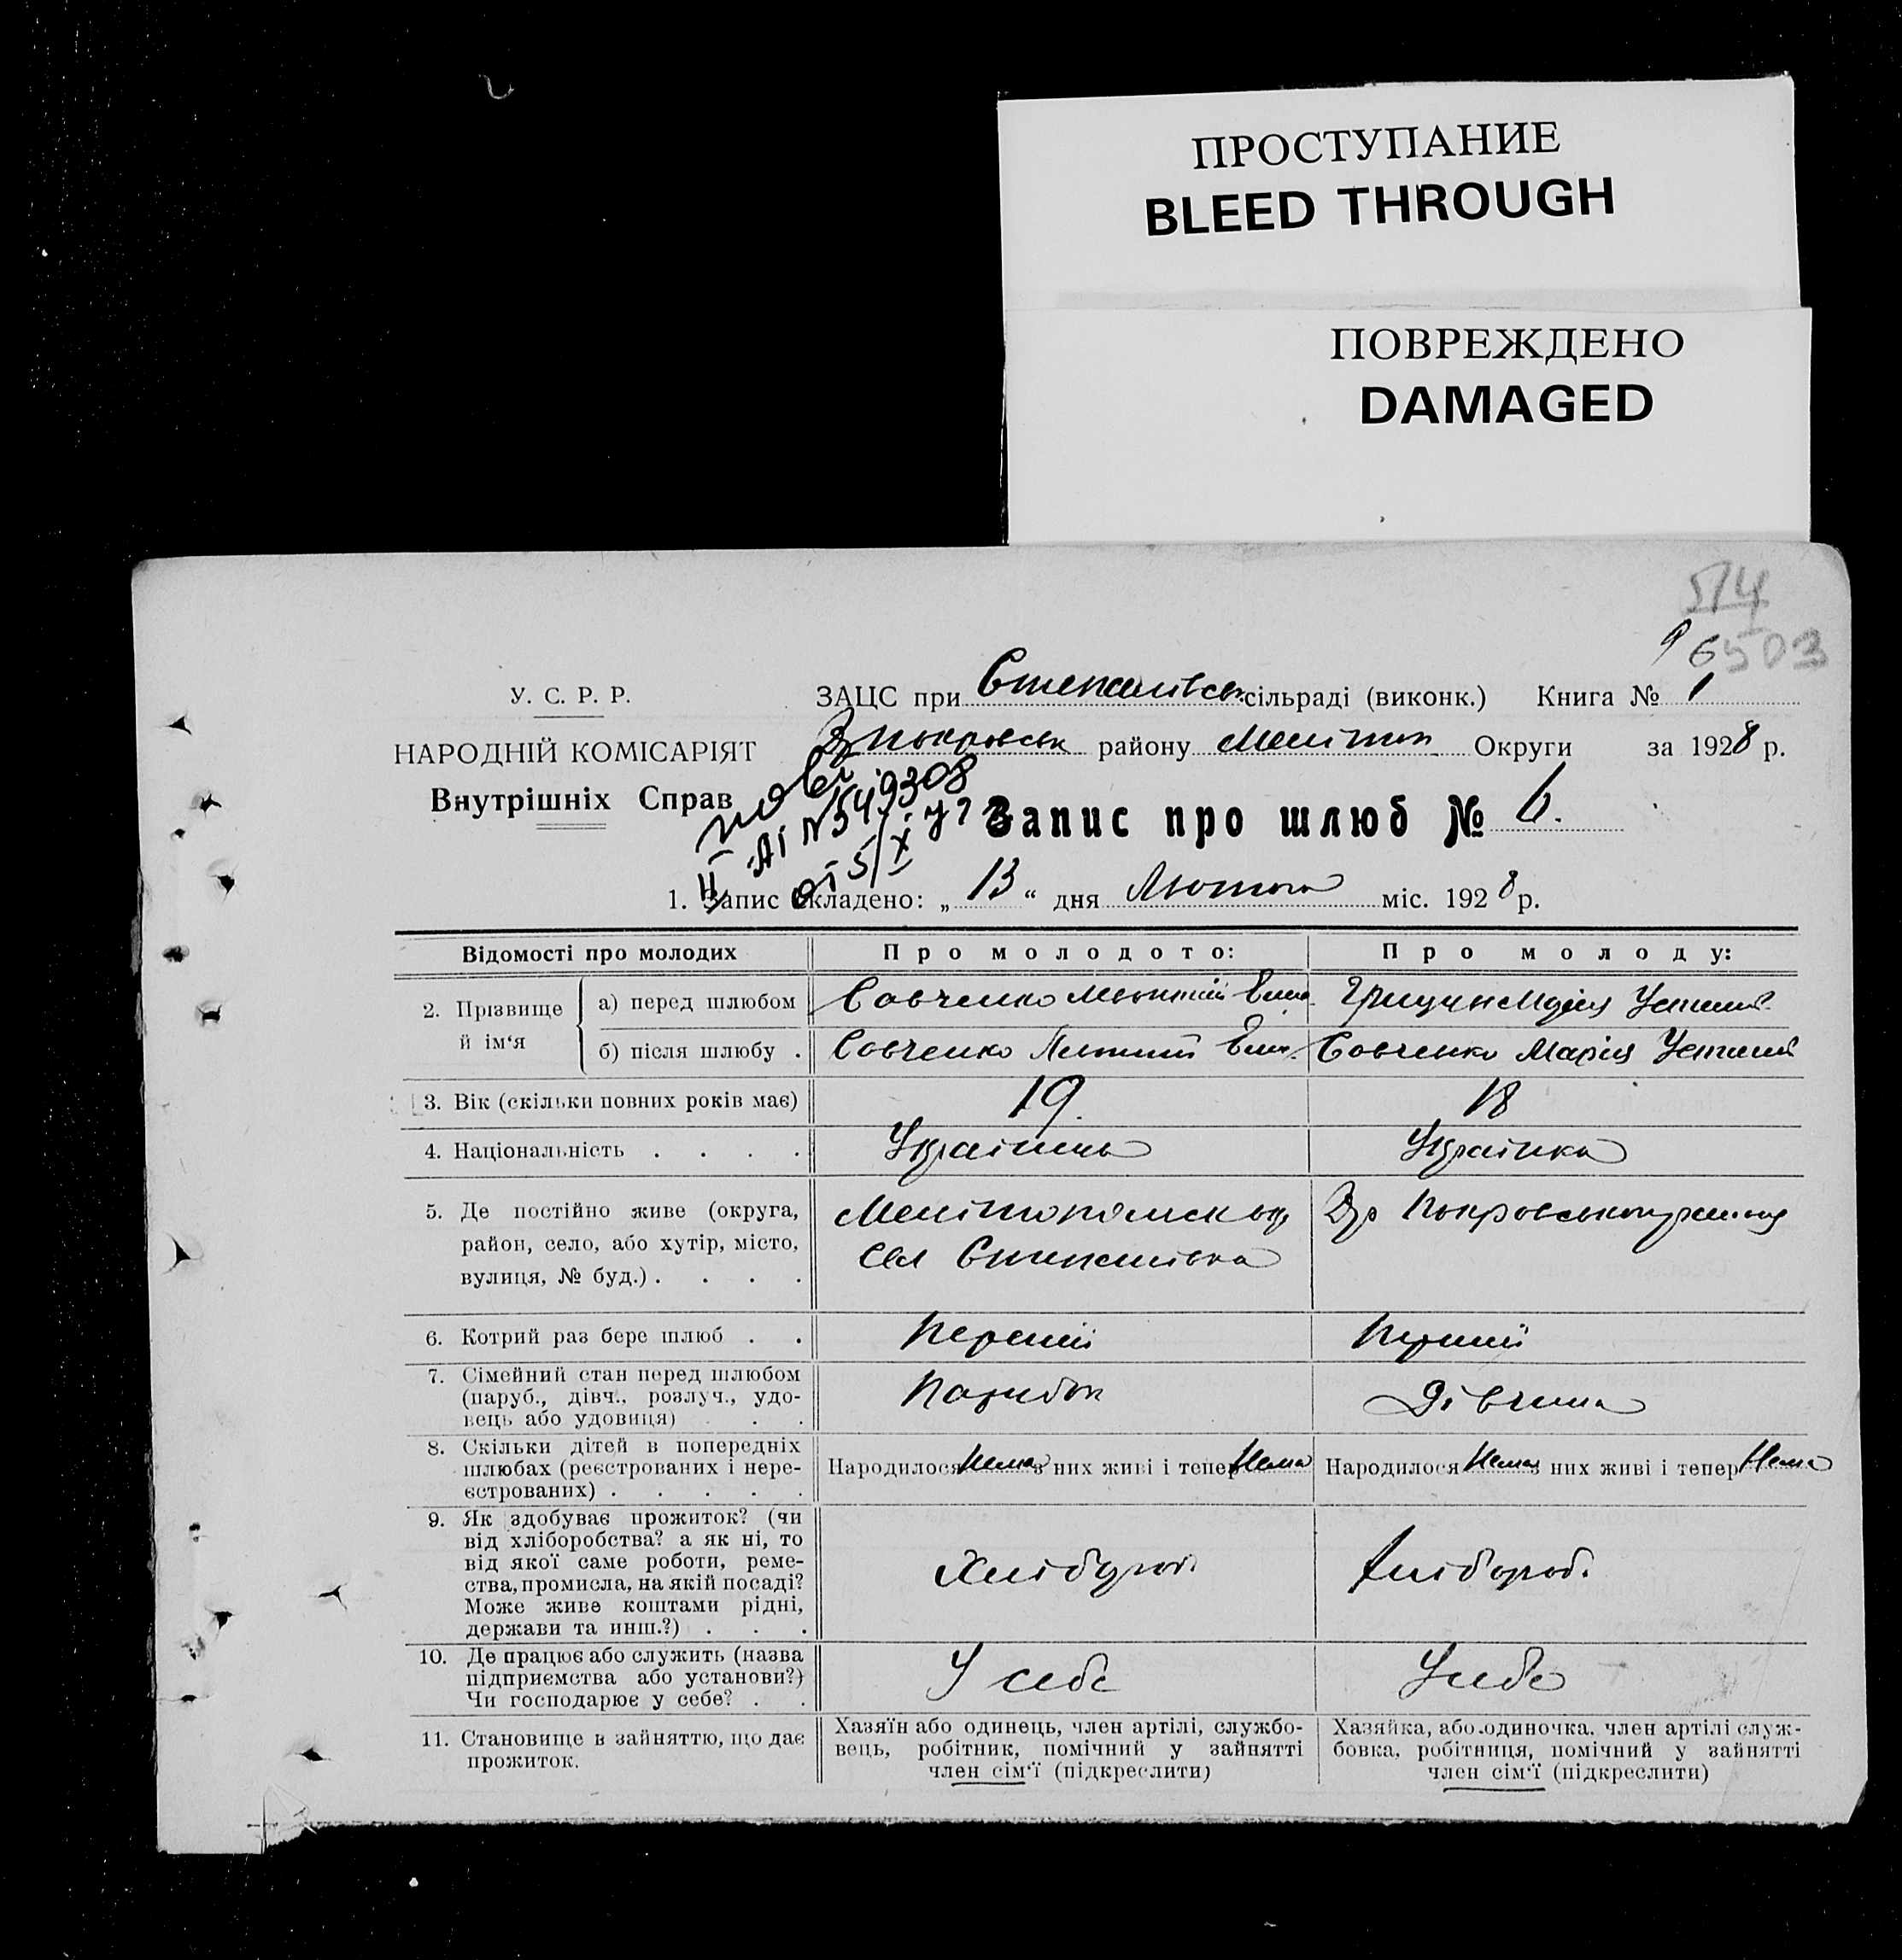 ПРОСТУПАНИЕ
BLEED THROUGH
ПОВРЕЖДЕНО
DAMAGED
514
503
У. С. Р. Р.
ЗАЦС при Степанівськ. сільраді (виконк.) Книга № 1
НАРОДНІЙ КОМІСАРІЯТ
Покровськ району Мелітоп. Округи за 1928 р.
Внутрішніх Справ
Запис про шлюб № 6.
1. Запис складено: „ 13 “ дня Лютого міс. 1928 р.
Відомості про молодих
Про молодого:
Про молоду:
2. Прізвище й ім‘я
а) перед шлюбом
Савченко
Грицун Марія Устимів.
б) після шлюбу .
Савченко
Савченко Марія Устимів
3. Вік (скільки повних років має)
19.
18
4. Національність . . . .
Українець
Українка
5. Де постійно живе (округа,
район, село, або хутір, місто,
вулиця, № буд.) . . . .
Мелітопольск окр
Сел Степанівка
Покровського району
6. Котрий раз бере шлюб . .
Перший
Перший
7. Сімейний стан перед шлюбом
(паруб., дівч., розлуч., удо-
вець або удовиця) . . .
Парубок
Дівчина
8. Скільки дітей в попередніх
шлюбах (реєстрованих і нере-
єстрованих) . . . . .
Народилося Нема з них живі і тепер Нема
Народилося Нема з них живі і тепер Нема
9. Як здобуває прожиток? (чи
від хліборобства? а як ні, то
від якої саме роботи, реме-
ства, промисла, на якій посаді?
Може живе коштами рідні,
держави та инш.?) . . .
Хлібороб.
Хлібороб.
10. Де працює або служить (назва
підприємства або установи?)
Чи господарює у себе? . .
У себе
У себе
11. Становище в зайняттю, що дає
прожиток.
Хазяїн або одинець, член артілі, службо-
вець, робітник, помічний у зайнятті
член сім‘ї (підкреслити)
Хазяйка, або одиночка, член артілі служ-
бовка, робітниця, помічний у зайнятті
член сім‘ї (підкреслити)